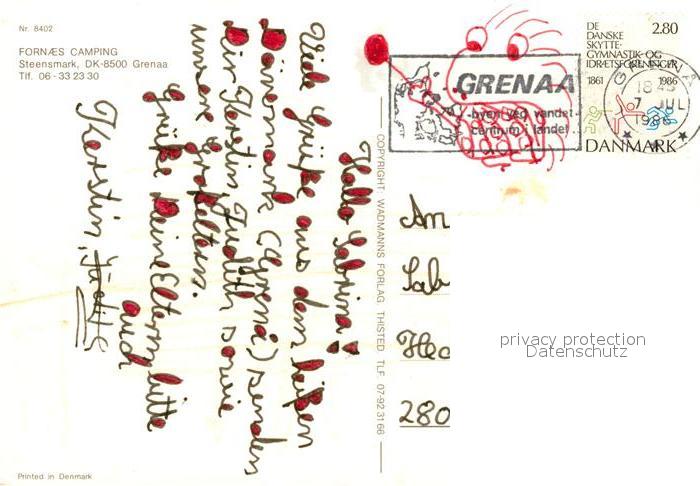 Nr. 8402
FORNÆS CAMPING
Steensmark, DK-8500 Grenaa
Tlf. 06-33 23 30
Hallo Sabrina!
Viele Grüße aus dem heißen
Dänemark (Grenå) senden
Dir Kerstin, Judith sowie
unsere Großeltern.
Grüße Deine Eltern bitte
auch
Kerstin, Judith
Printed in Denmark
COPYRIGHT: WADMANNS FORLAG, THISTED TLF. 07-92 31 66
GRENAA
-byen ved vandet-
centrum i landet
DE
DANSKE
SKYTTE-
GYMNASTIK- OG
IDRÆTSFORENINGER
2.80
1861 1986
GRENAA
18 45
7 JULI
1986
DANMARK
An
Sab
280
privacy protection
Datenschutz